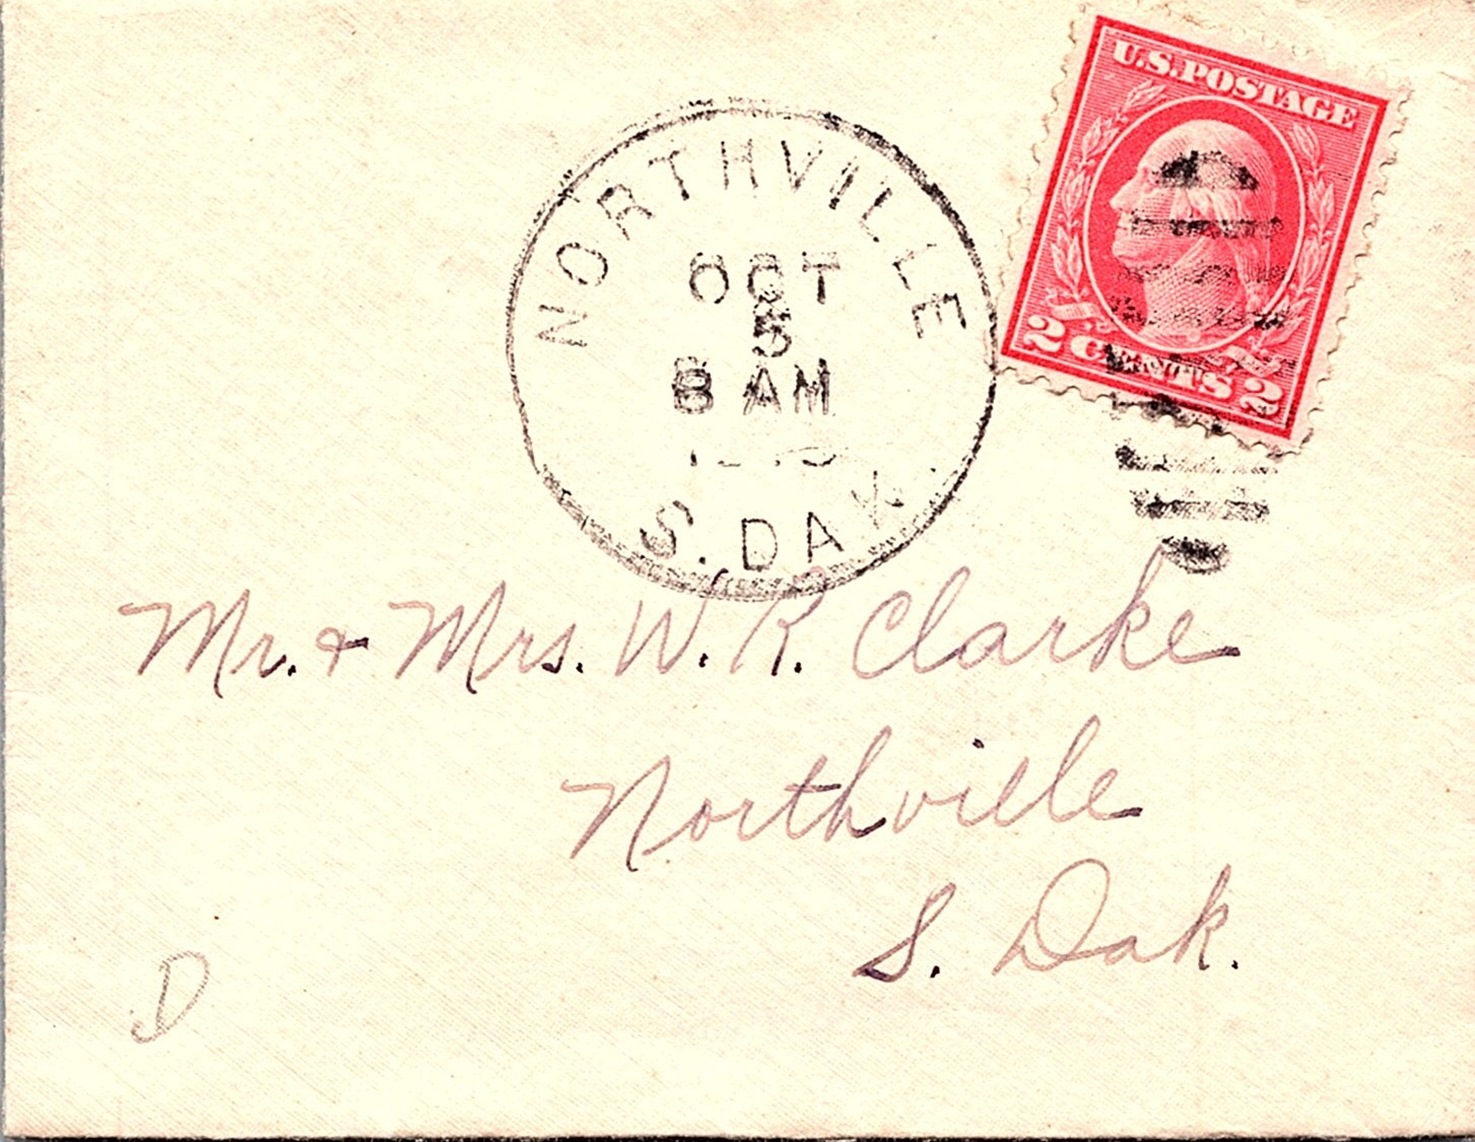 U.S. POSTAGE
2 CENTS 2
NORTHVILLE
OCT
5
8 AM
S. DAK.
Mr. & Mrs. W. R. Clarke
Northville
S. Dak.
D